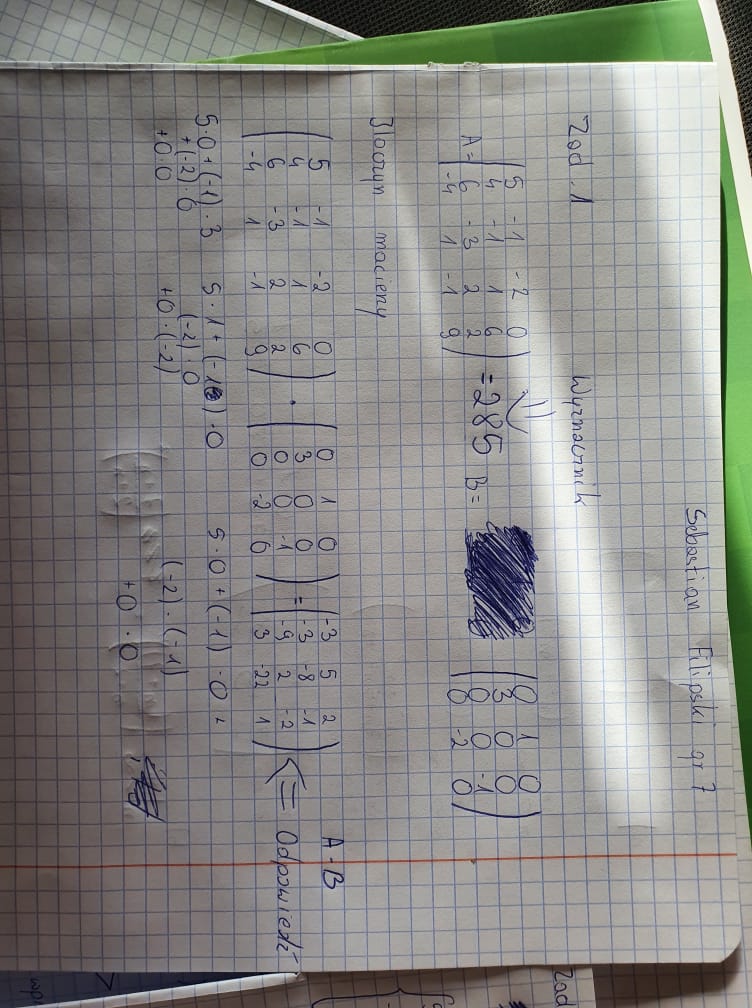 Sebastian Filipski gr 7
Zad. 1 Wyznacznik
A = ( 5 -1 -2 0
4 -1 1 6
6 -3 2 2
-4 1 -1 9 ) = 285 B = ( 0 1 0
3 0 0
0 0 -1
0 -2 0 )
Iloczyn macierzy
( 5 -1 -2 0
4 -1 1 6
6 -3 2 2
-4 1 -1 9 ) · ( 0 1 0
3 0 0
0 0 -1
0 -2 0 ) = ( -3 5 2
-3 -8 -1
-9 2 -2
3 -22 1 ) <= Odpowiedź
A·B
5·0+(-1)·3 5·1+(-1)·0 5·0+(-1)·0+
+(-2)·6 (-2)·0 (-2)·(-1)
+0·0 +0·(-2) +0·0
Zad